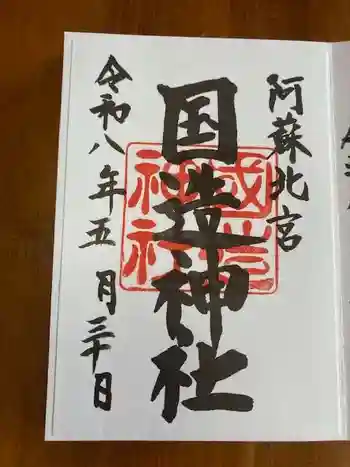 阿蘇北宮
国造神社
國造
神社
令和八年五月三十日